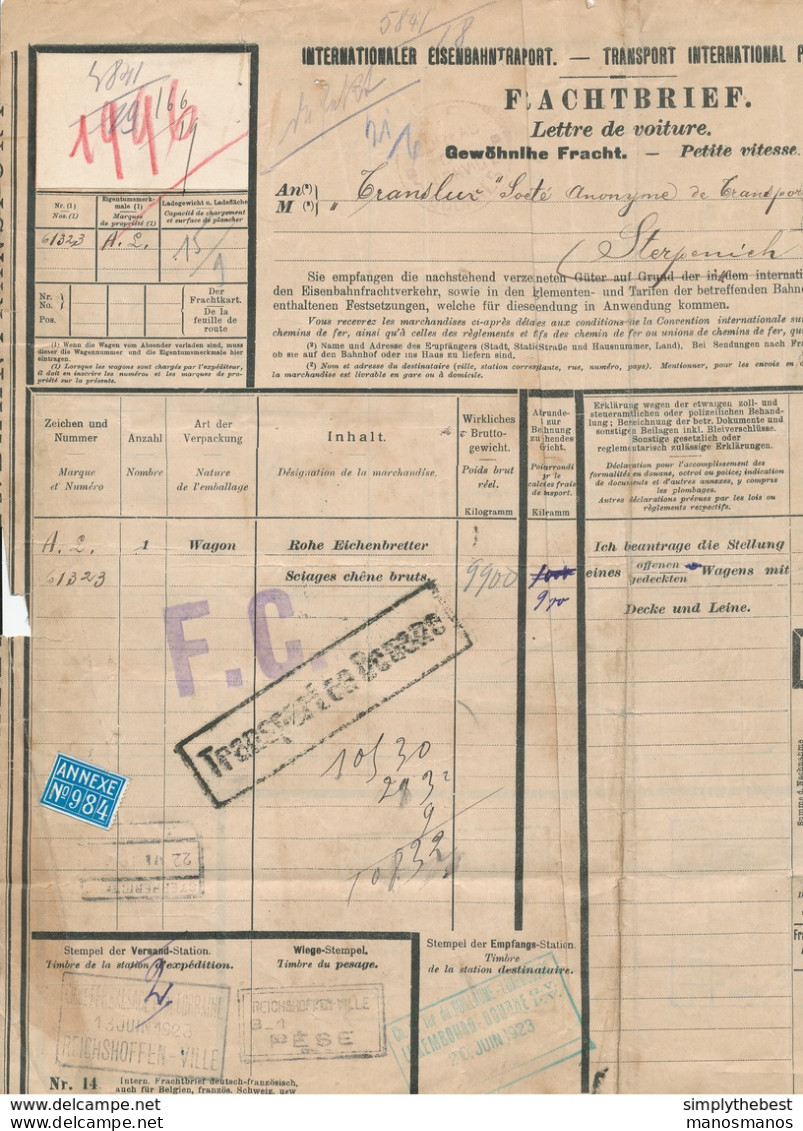 5841/18
INTERNATIONALER EISENBAHNTRAPORT. — TRANSPORT INTERNATIONAL P
FRACHTBRIEF.
Lettre de voiture.
Gewöhnlhe Fracht. — Petite vitesse.
5841
1996
166
An(²)
M (²)
" Translux " Société Anonyme de Transpor
Sterpenich
Nr. (1)
Nos. (1)
Eigentumsmerk-
male (1)
Marques
de propriété (1)
Ladegewicht u. Ladefläche
Capacité de chargement
et surface de plancher
61323
A. L.
15
Nr.
No.
Pos.
Der
Frachtkart.
De la
feuille de
route
(1) Wenn die Wagen vom Absender verladen sind, muss
dieser die Wagennummer und die Eigentumsmerkmale hier
eintragen.
(1) Lorsque les wagons sont chargés par l'expéditeur,
il doit en inscrire les numéros et les marques de pro-
priété sur la présente.
Sie empfangen die nachstehend verzeneten Güter auf Grund der in dem internati
den Eisenbahnfrachtverkehr, sowie in den glementen- und Tarifen der betreffenden Bahne
enthaltenen Festsetzungen, welche für dieseendung in Anwendung kommen.
Vous recevrez les marchandises ci-après détaes aux conditions de la Convention internationale su
chemins de fer, ainsi qu'à celles des règlements et tfs des chemin de fer ou unions de chemins de fer, qu
(²) Name und Adresse des Empfängers (Stadt, Stati Straße und Hausnummer, Land). Bei Sendungen nach Fr
ob sie auf den Bahnhof oder ins Haus zu liefern sind.
(²) Nom et adresse du destinataire (ville, station correstante, rue, numéro, pays). Mentionner, pour les envois en d
la marchandise est livrable en gare ou à domicile.
Zeichen und
Nummer
Marque
et Numéro
Anzahl
Nombre
Art der
Verpackung
Nature
de l'emballage
Inhalt.
Désignation de la marchandise.
Wirkliches
Brutto-
gewicht.
Poids brut
réel.
Kilogramm
Kilramm
Erklärung wegen der etwaigen zoll- und
steueramtlichen oder polizeilichen Behand-
lung; Bezeichnung der betr. Dokumente und
sonstigen Beilagen inkl. Bleiverschlüsse.
Sonstige gesetzlich oder
reglementarisch zulässige Erklärungen.
Déclaration pour l'accomplissement des
formalités en douane, octroi ou police; indication
de documents et d'autres annexes, y compris
les plombages.
Autres déclarations prévues par les lois ou
règlements respectifs.
A. L. 1 Wagon Rohe Eichenbretter
61323 Sciages chêne bruts. 9900
Ich beantrage die Stellung
eines offenen
gedeckten Wagens mit
Decke und Leine.
F.C.
Transport en Douane
10530
ANNEXE
No 984
Summe d. Nachnahme
22
Stempel der Versand-Station.
Timbre de la station d'expédition.
Wiege-Stempel.
Timbre du pesage.
Stempel der Empfangs-Station.
Timbre
de la station destinataire.
13 JUIN 1923
REICHSHOFFEN-VILLE
REICHSHOFFEN-VILLE
B-1
PESE
LUXEMBOURG-DOUANE
20 JUIN 1923
Nr. 14 Intern. Frachtbrief deutsch-französisch,
auch für Belgien, französ. Schweiz, usw
simplythebest
manosmanos